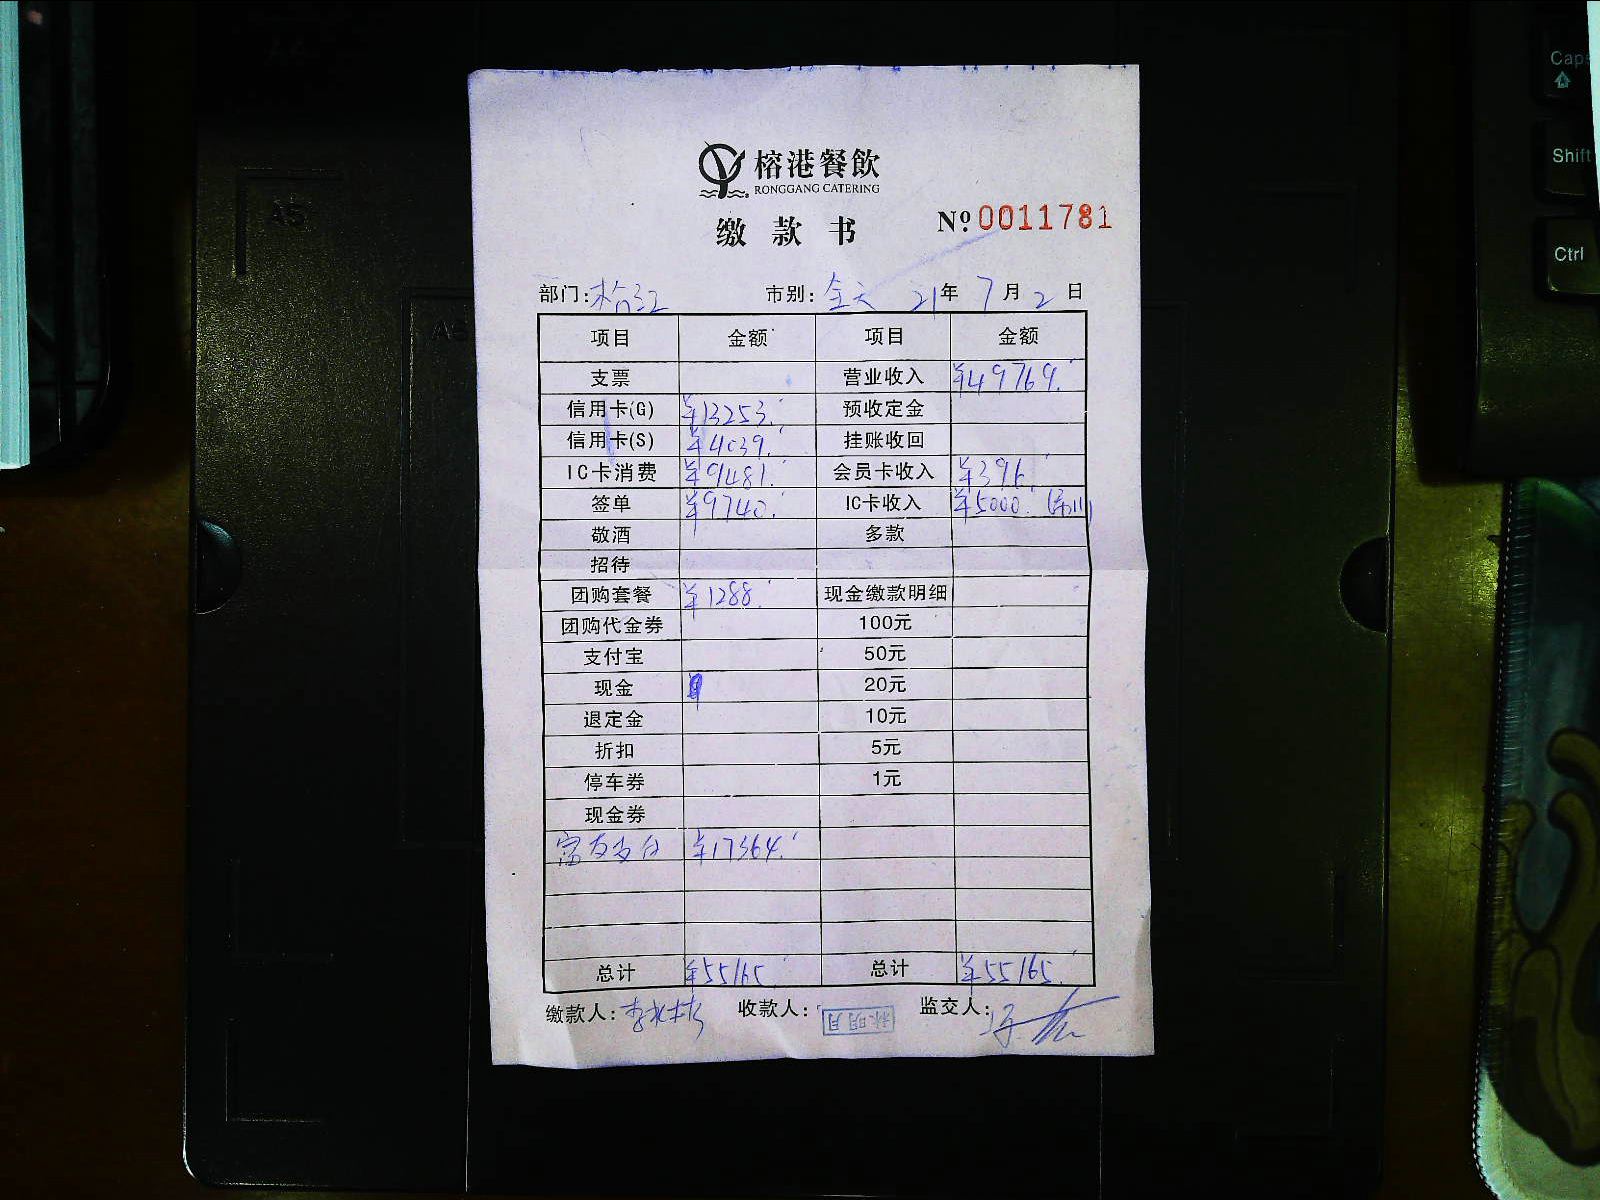 榕港餐飲
RONGGANG CATERING
缴款书 Nº:0011781
部门: 市别: 全天 21年 7月 2日
项目 金额 项目 金额
支票 营业收入 ¥49769.
信用卡(G) ¥13253. 预收定金
信用卡(S) ¥4039. 挂账收回
IC卡消费 ¥9481. 会员卡收入 ¥396.
签单 ¥9740. IC卡收入 ¥5000.
敬酒 多款
招待
团购套餐 ¥1288. 现金缴款明细
团购代金券 100元
支付宝 50元
现金 20元
退定金 10元
折扣 5元
停车券 1元
现金券
富友支付 ¥17364.
总计 ¥55165. 总计 ¥55165.
缴款人: 收款人: 林明月 监交人:
A5
Caps
Shift
Ctrl